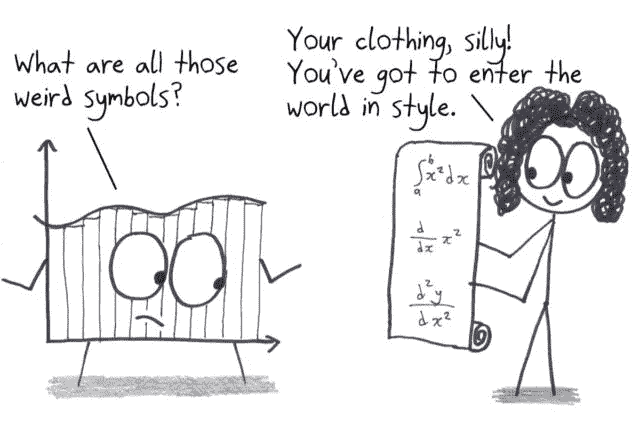 What are all those
weird symbols?
Your clothing, silly!
You've got to enter the
world in style.
∫ₐᵇ x² dx
d/dx x²
d²y/dx²